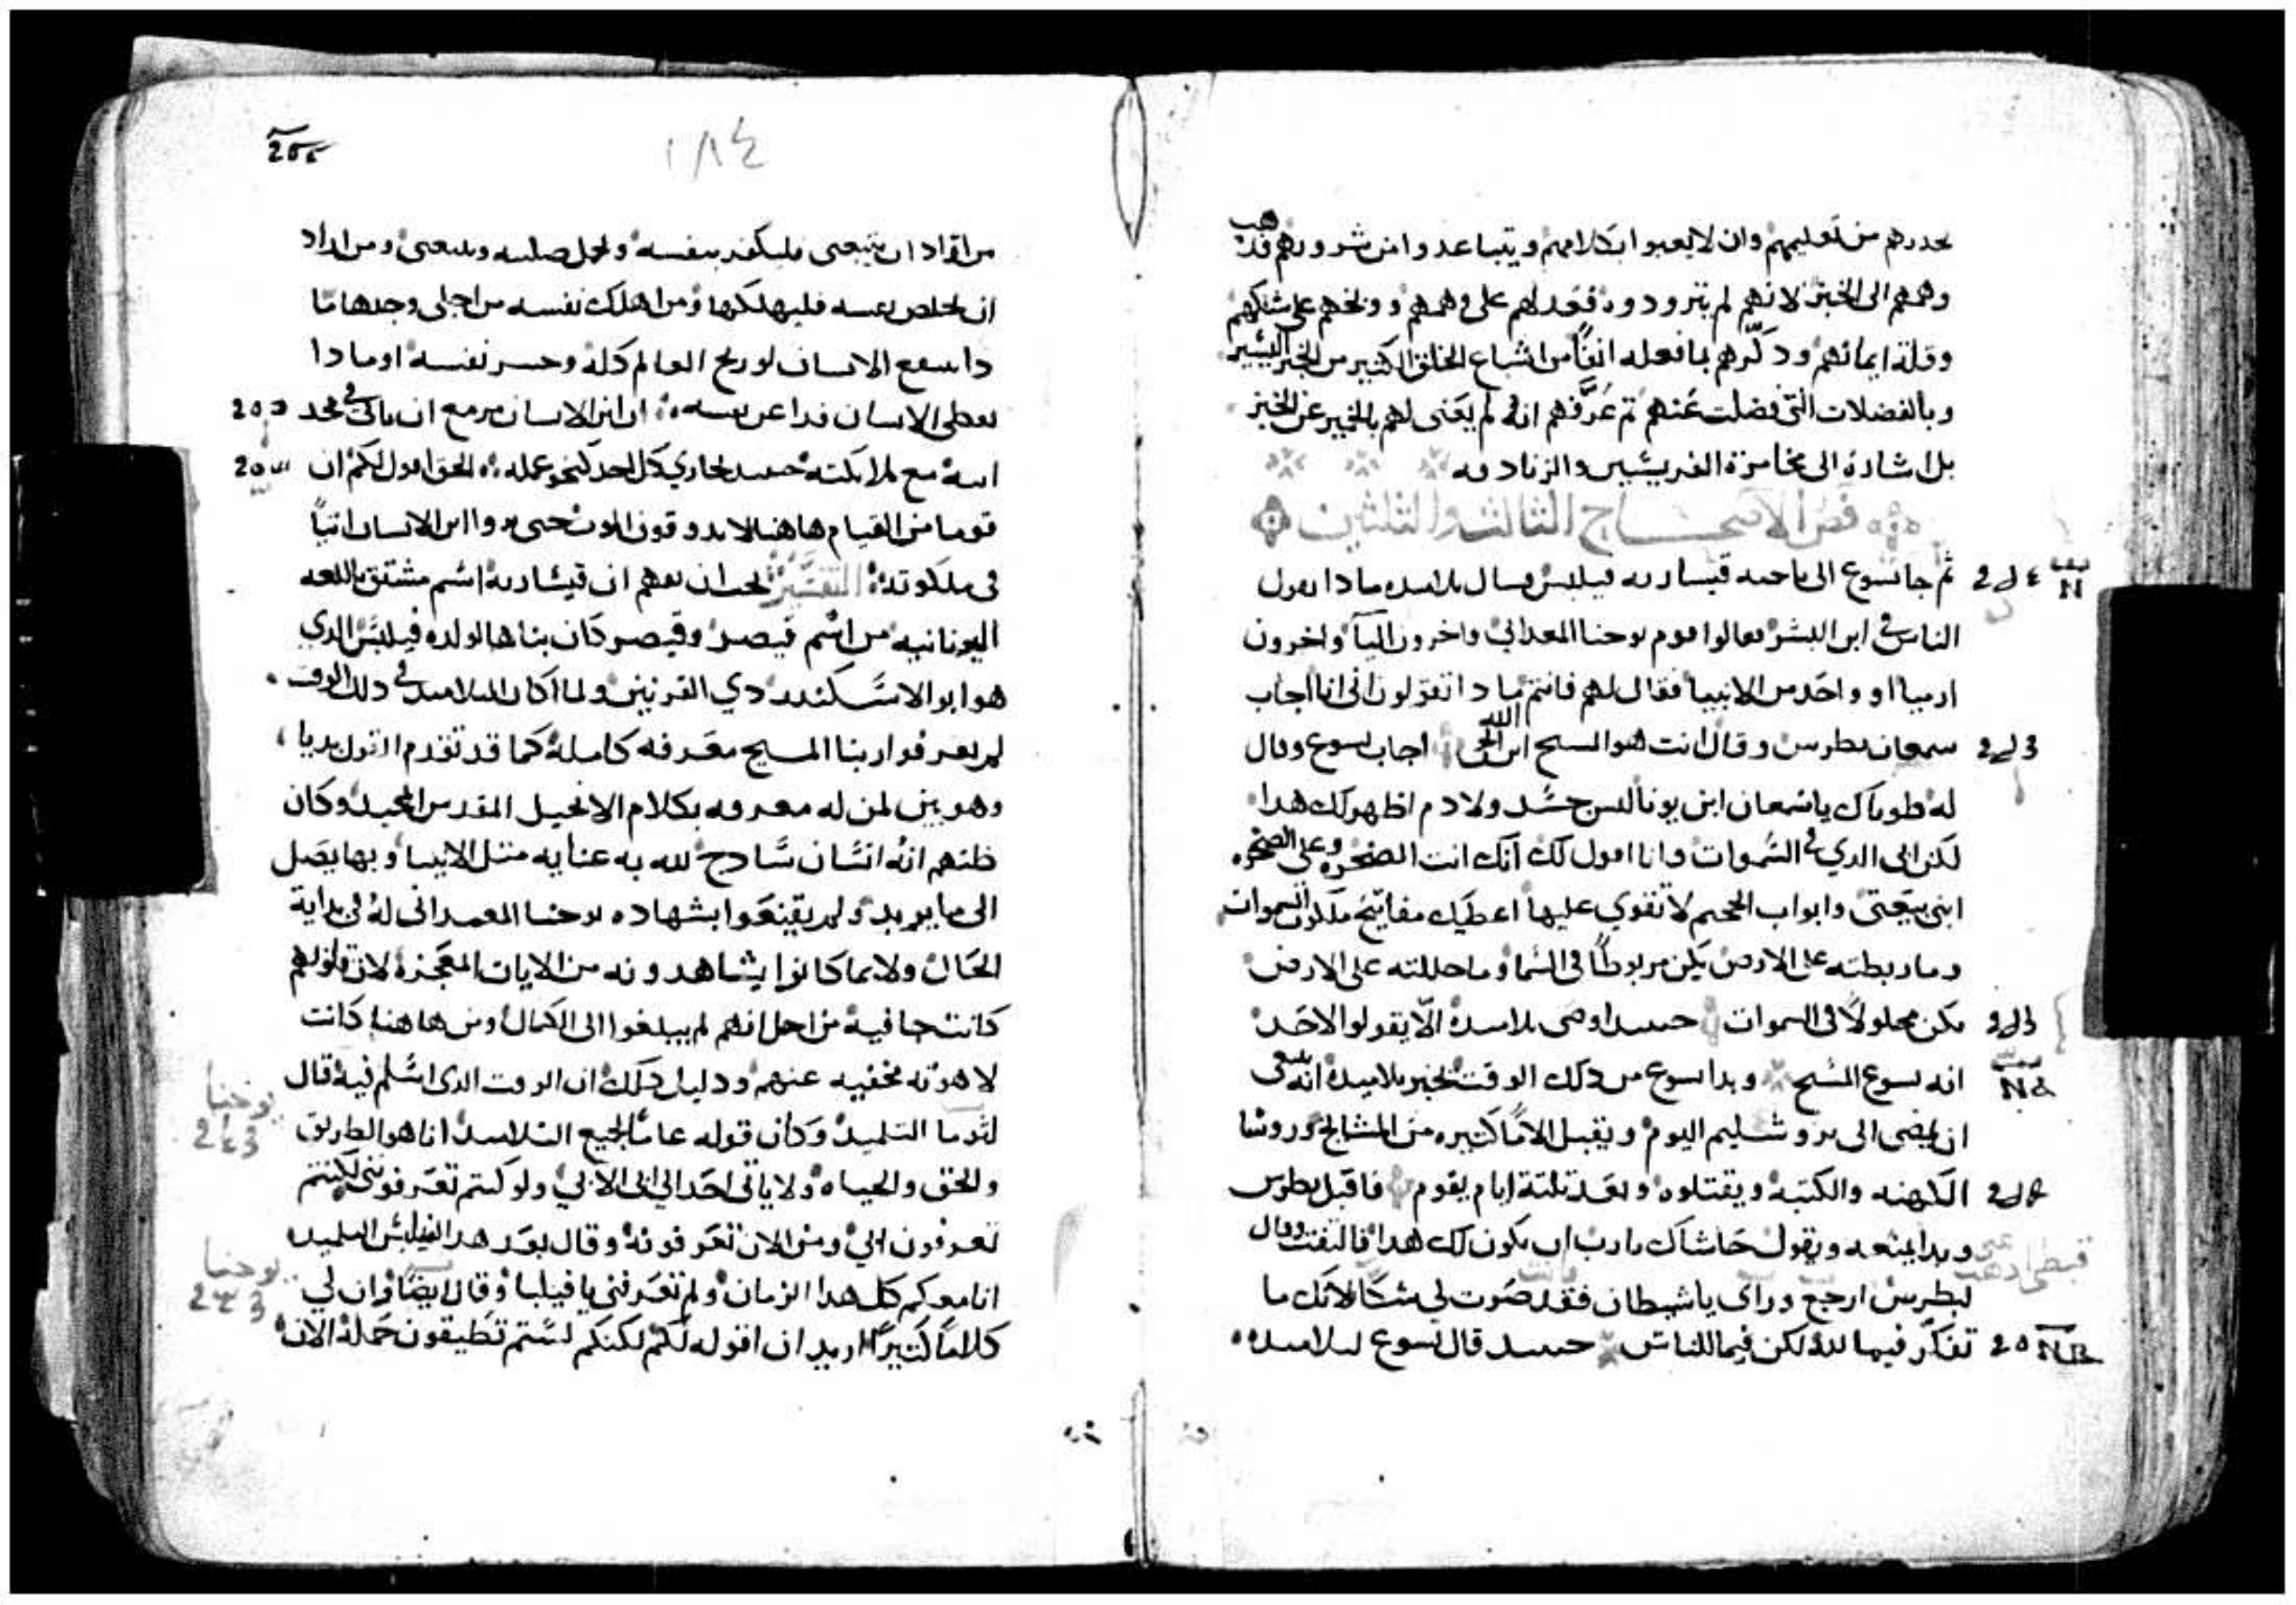 يحدرهم من تعليمهم وان لا يعبوا بكلامهم ويتباعدوا من شرورهم فدهب
وهمهم الى الخبز لانهم لم يتزودوه فعدلهم على وهمهم ووبخهم على شكهم
وقلة ايمانهم ودكّرهم بما فعله انفًا من اشباع الخلق الكثير من الخبز اليسير
وبالفضلات التي فضلت عنهم تم عَرَّفهم انه لم يعنى لهم بالخمير عن الخبز
بل اشارة الى مخامرة الفريسيين والزنادقه
فص الاصحاح الثالث والثلثين
ثم جا يسوع الى ناحيه قيساريه فيلبس فسال تلاميده مادا يقول
الناس في ابن البشر فقالوا قوم يوحنا المعمداني واخرون اليآ واخرون
ارميا او واحد من الانبيا فقال لهم فانتم مادا تقولون اني انا اجاب
سمعان بطرس وقال انت هو المسيح ابن الله الحي اجاب يسوع وقال
له طوباك ياسمعان ابن يونا ليس جسد ولا دم اظهر لك هدا
لكن ابي الدي في السموات وانا اقول لك انك انت الصخره وعلى الصخره
ابني بيعتي وابواب الجحيم لا تقوي عليها اعطيك مفاتيح ملكوت السموات
وما ربطته على الارض يكن مربوطًا في السما وما حللته على الارض
يكن محلولًا في السموات حينيد اوصى تلاميده الّا يقولوا لاحد
انه يسوع المسيح وبدا يسوع من دلك الوقت يخبر تلاميده انه ينبغي
ان يمضي الى يروشليم اليوم ويقبل الامًا كثيره من المشايخ وروسا
الكهنه والكتبه ويقتلوه وبعد تلتة ايام يقوم فاقبل بطرس
وبدا يمنعه ويقول حاشاك يارب ان يكون لك هدا فالتفت وقال
لبطرس ارجع وراى ياشيطان فقد صرت لي شكًا لانك ما
تفكر فيما لله لكن فيما للناس حينيد قال يسوع لتلاميده
١٨٤
من اراد ان يتبعني فليكفر بنفسه وليحمل صليبه ويتبعني ومن اراد
ان يخلص نفسه فليهلكها ومن اهلك نفسه من اجلي وجدها ما
دا ينفع الانسان لو ربح العالم كله وخسر نفسه او مادا
يعطي الانسان فدا عن نفسه ان ابن الانسان مزمع ان ياتى في مجد
ابيه مع ملايكته حينيد يجازي كل احد كنحو عمله الحق اقول لكم ان
قوما من القيام هاهنا لا يدوقون الموت حتى يروا ابن الانسان اتيًا
في ملكوته التفسير يجب ان يفهم ان قيساريه اسم مشتق باللغه
اليونانيه من اسم قيصر وقيصر كان بناها لولده فيلبس الدي
هو ابو الاسكندر دي القرنين ولما كان التلاميد في دلك الوقت
لم يعرفوا ربنا المسيح معرفه كامله كما قد تقدم القول بديا
وهو بين لمن له معرفه بكلام الانجيل المقدس المجيد وكان
ظنهم انه انسان سادج لله به عنايه مثل الانبيا وبها يصل
الى ما يريد ولم يقنعوا بشهاده يوحنا المعمداني له في بداية
الحال ولا بما كانوا يشاهدونه من الايات المعجزه لان قلوبهم
كانت جافيه من اجل انهم لم يبلغوا الى الكمال ومن هاهنا كانت
لاهوته مخفيه عنهم ودليل دلك ان الوقت الدى اسلم فيه قال
لتوما التلميد وكان قوله عامًا لجميع التلاميد انا هو الطريق
والحق والحياه ولا ياتى احد الى ابى الا بي ولو كنتم تعرفونى لكنتم
تعرفون ابي ومن الان تعرفونه وقال بعد هدا لفيلبس التلميد
انا معكم كل هدا الزمان ولم تعرفني يا فيلبا وقال ايضًا وان لي
كلامًا كتيرًا اريد ان اقوله لكم لكنكم لستم تطيقون حمله الان
يوحنا
يوحنا